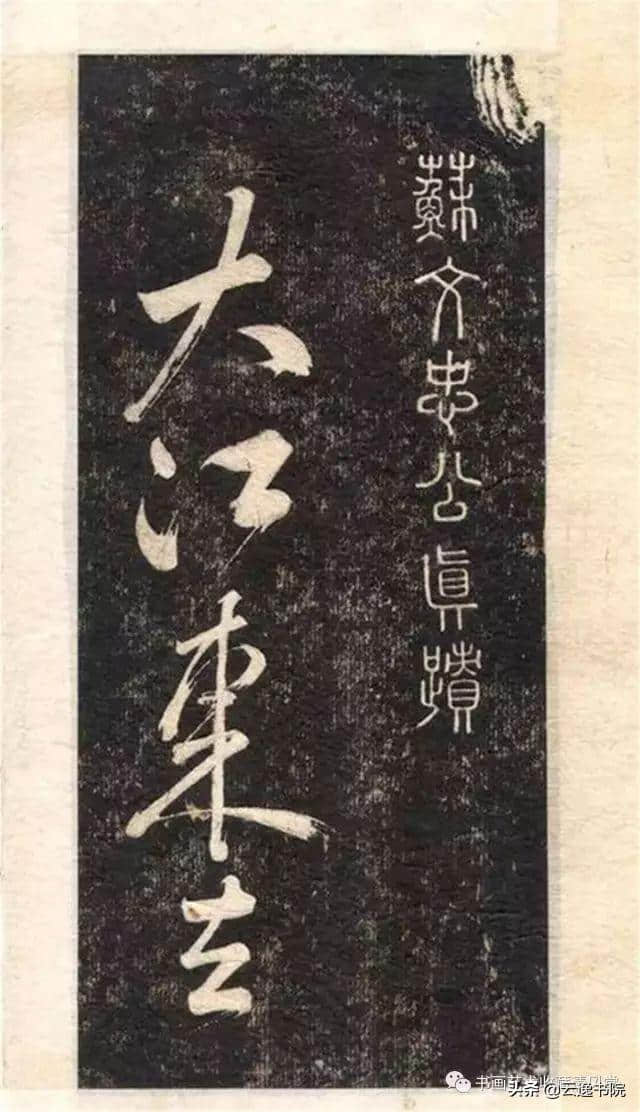 蘇文忠公真蹟
大江東去
头条@云逸书院